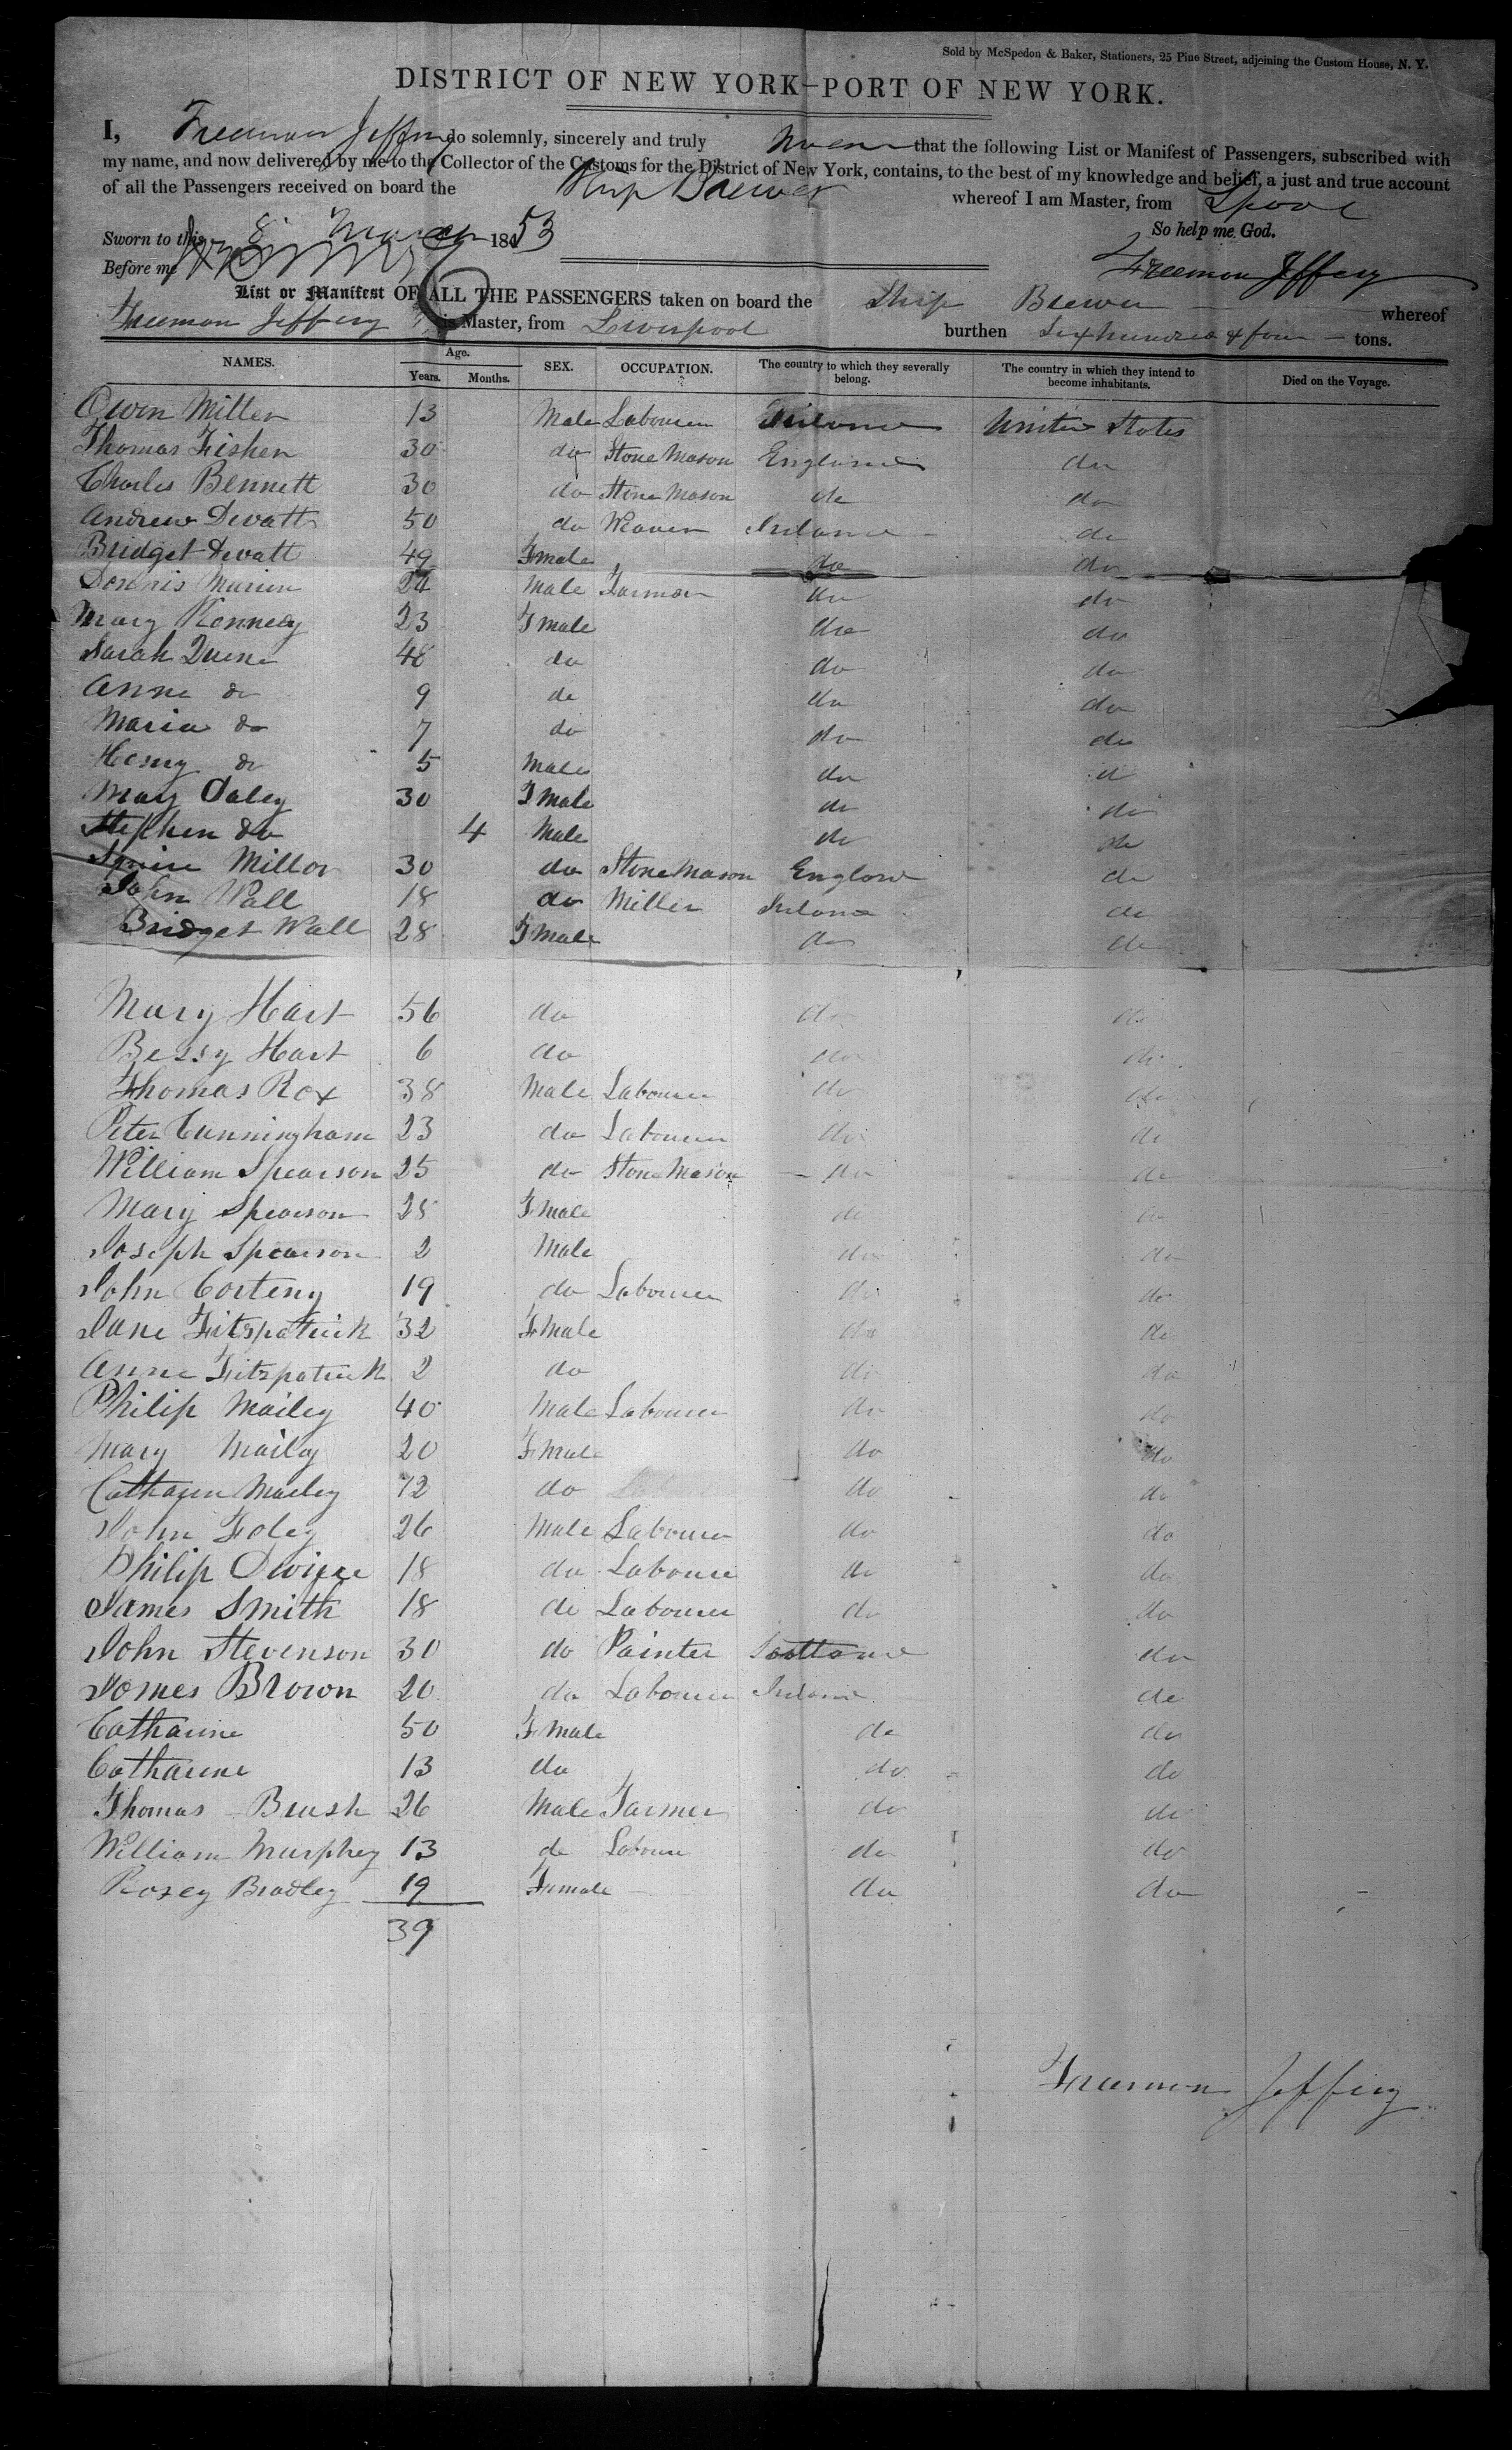 Sold by McSpedon & Baker, Stationers, 25 Pine Street, adjoining the Custom House, N. Y.
DISTRICT OF NEW YORK-PORT OF NEW YORK.
I, Freeman Jeffery do solemnly, sincerely and truly swear that the following List or Manifest of Passengers, subscribed with
my name, and now delivered by me to the Collector of the Customs for the District of New York, contains, to the best of my knowledge and belief, a just and true account
of all the Passengers received on board the Ship Brewer whereof I am Master, from Lpool
Sworn to this 8 March 1853 So help me God.
Before me Freeman Jeffery
List or Manifest OF ALL THE PASSENGERS taken on board the Ship Brewer whereof
Freeman Jeffery is Master, from Liverpool burthen Six hundred & four tons.
NAMES. Age. Years. Months. SEX. OCCUPATION. The country to which they severally belong. The country in which they intend to become inhabitants. Died on the Voyage.
Owen Miller 13 Male Labourer Ireland United States
Thomas Fisher 30 do Stone Mason England do
Charles Bennett 30 do Stone Mason do do
Andrew Devatt 50 do Weaver Ireland do
Bridget Devatt 49 Fmale do do
Dennis 24 Male Farmer do do
Mary Kennedy 23 Fmale do do
Sarah 48 do do do
Anne do 9 do do do
Maria do 7 do do do
Henry do 5 Male do do
Mary Daley 30 Fmale do do
Stephen do 4 Male do do
Squire Millor 30 do Stone Mason England do
John Wall 18 do Miller Ireland do
Bridget Wall 28 Fmale do do
Mary Hart 56 do do do
Bessy Hart 6 do do do
Thomas Rox 38 Male Labourer do do
Peter Cunningham 23 do Labourer do do
William Spearson 25 do Stone Mason do do
Mary Spearson 28 Fmale do do
Joseph Spearson 2 Male do do
John Corteny 19 do Labourer do do
Jane Fitzpatrick 32 Fmale do do
Anne Fitzpatrick 2 do do do
Philip Mailey 40 Male Labourer do do
Mary Mailey 20 Fmale do do
Catharen Mailey 12 do do do
John Foley 26 Male Labourer do do
Philip 18 do Labourer do do
James Smith 18 do Labourer do do
John Stevenson 30 do Painter Scotland do
James Brown 20 do Labourer Ireland do
Catharine 50 Fmale do do
Catharine 13 do do do
Thomas Brush 26 Male Farmer do do
William Murphey 13 do Labourer do do
Rosey Bradley 19 Female do do
39
Freeman Jeffery